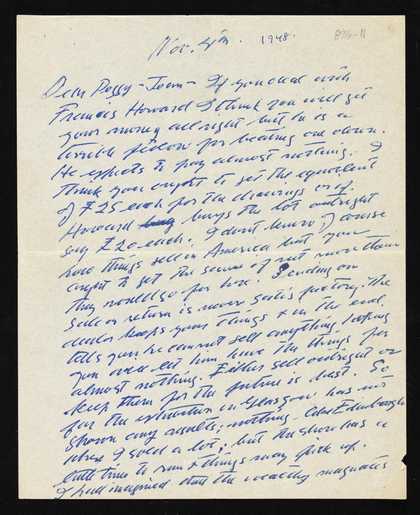 Nov. 4th. 1948. 876-11
Dear Peggy - Jean - If you deal with
Francis Howard I think you will get
your money all right but he is a
terrible fellow for beating one down.
He expects to pay almost nothing. I
think you ought to get the equivalent
of £25 each for the drawings or if
Howard buys the lot outright
say £20 each. I don't know of course
how things sell in America but you
ought to get the same if not more than
they would go for here. Sending on
sale or return is never satisfactory. the
dealer keeps your things & in the end
tells you he cannot sell anything, hoping
you will let him have the things for
almost nothing. Either sell outright or
keep them for the future is best. So
far the exhibition in Glasgow has not
shown any results; nothing like Edinburgh
where I sold a lot; but the show has a
little time to run & things may pick up.
I had imagined that the wealthy magnates